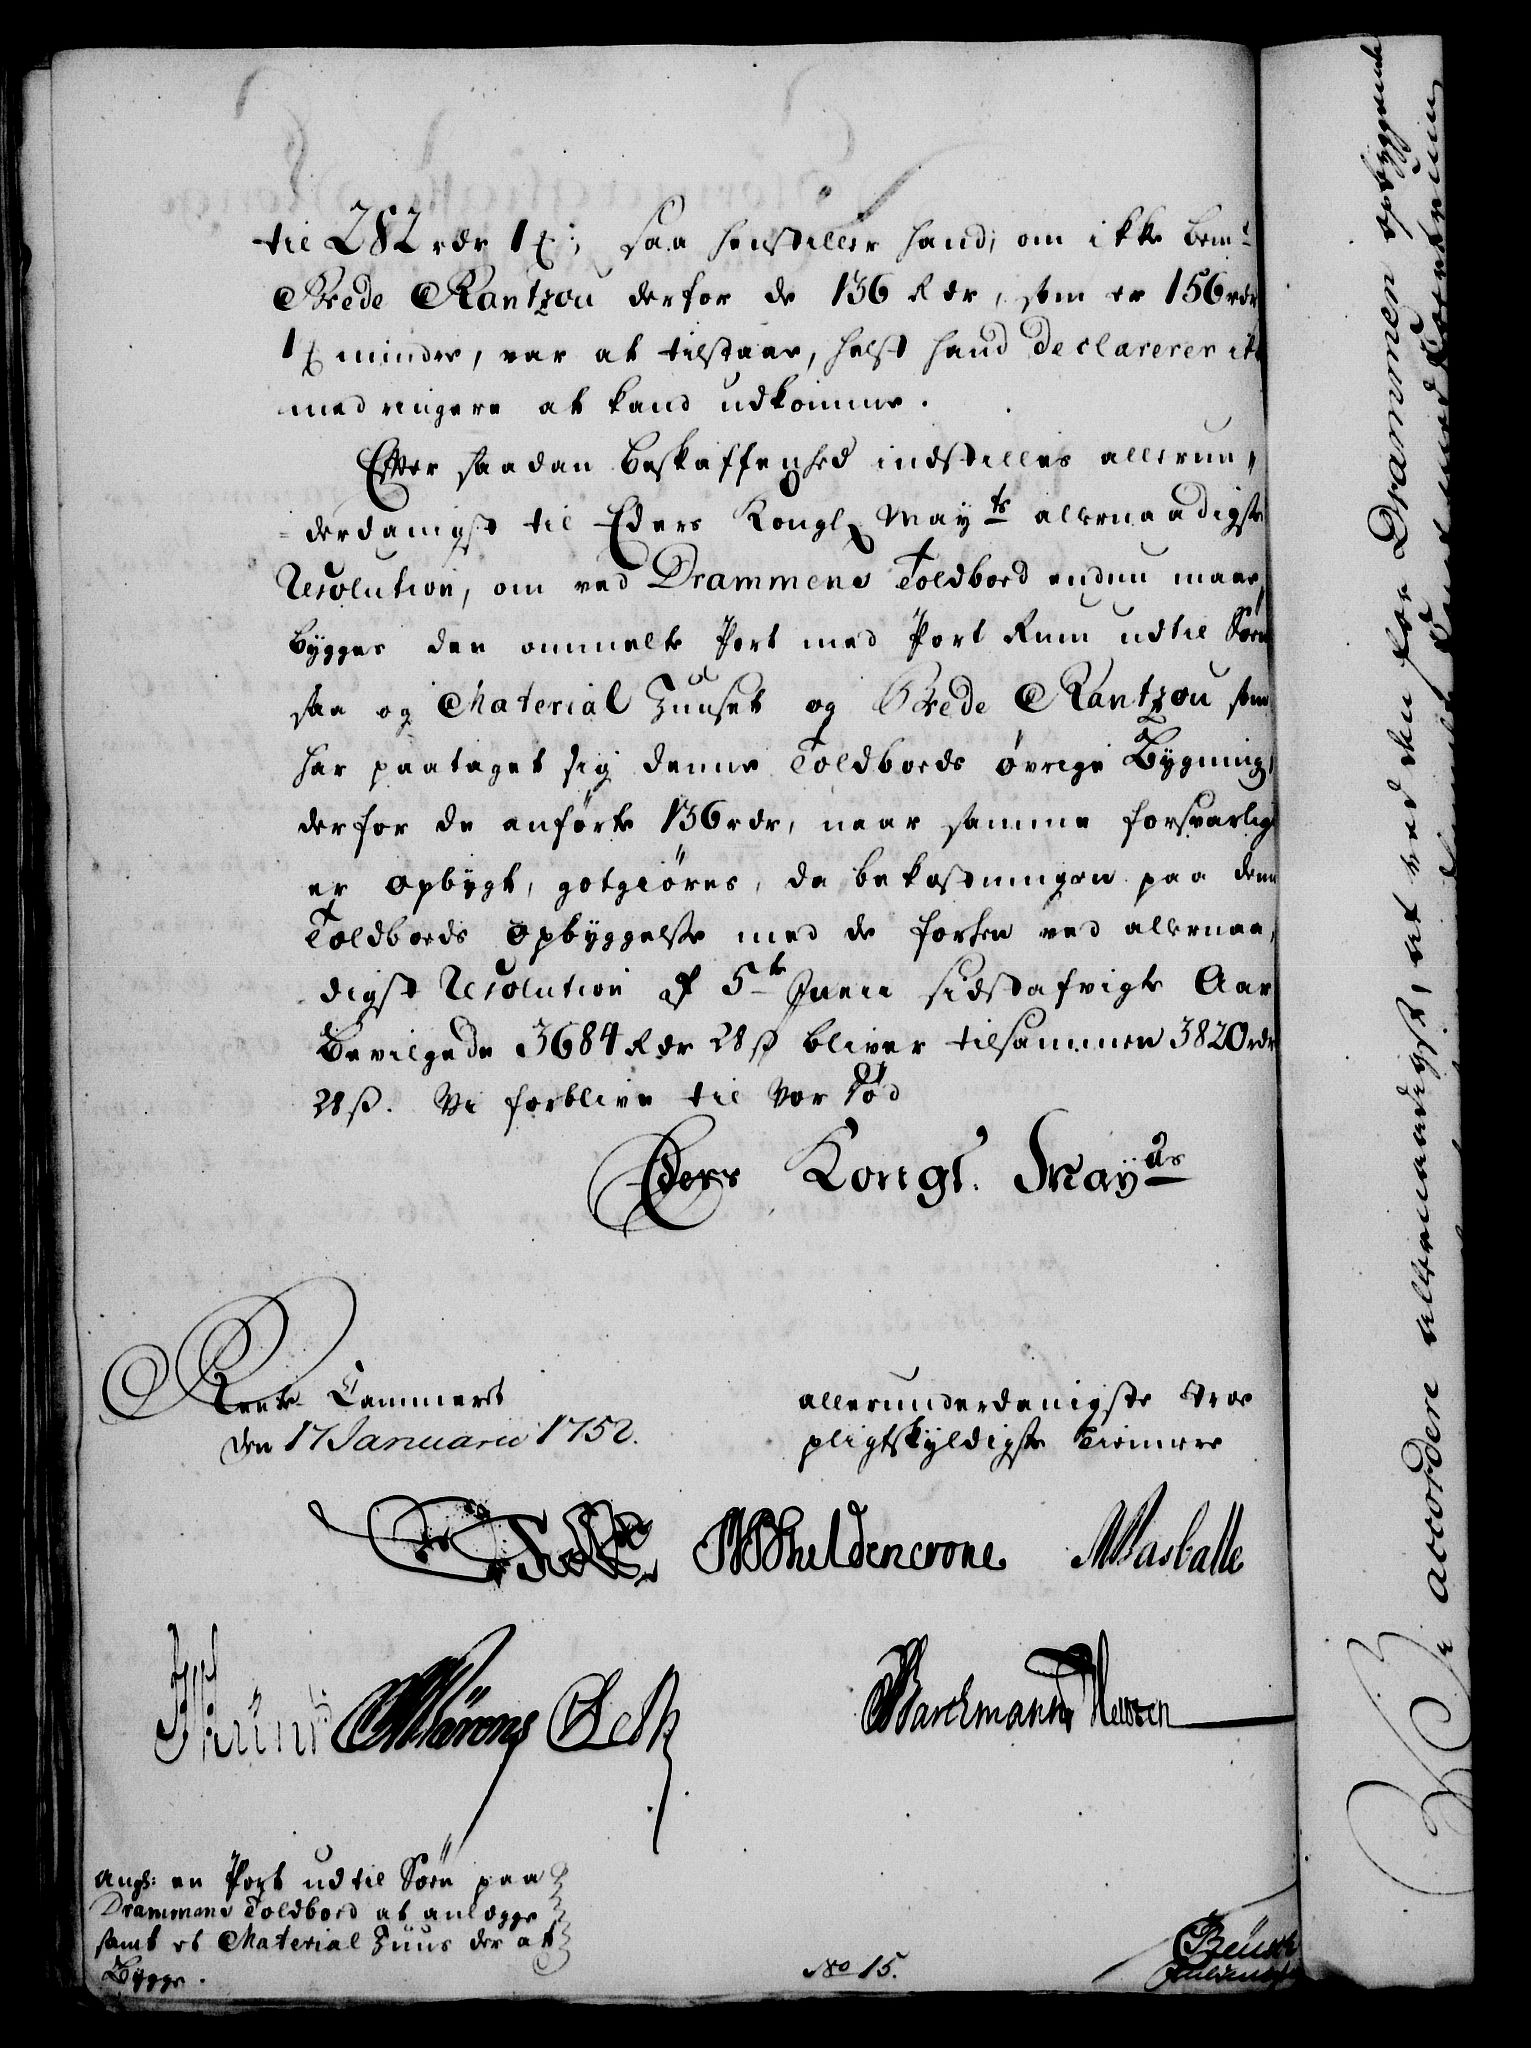 til 282 rdr 1 ; saa henstiller hand, om ikke bem.te
Brede Rantzou derfor de 136 Rdr, som er 156 rdr
1 mindre, var at tilstaae, helst hand Declarerer ike
med ringere at kand udkomme.
Efter saadan beskaffenhed indstilles allerun„
derdanigst til Eders Kongl May.ts allernaadigste
Resolution, om ved Drammens Toldboed endnu maae
bygges den ommelte Port med Port Rum ud til Söen
saa og Material Huuset og Brede Rantzou som
har paataget sig denne Toldboeds øvrige Bygning,
derfor de anförte 136 rdr, naar samme forsvarlig
er opbygt, gotgiöres, da bekostningen paa denne
Toldboeds opbyggelse med de forhen ved allernaa,
digst Resolution af 5.te Junii sidstafvigte Aar
Bevilgede 3684 Rdr 28 ß bliver tilsammen 3820 rdr
28 ß. Vi forblive til vor Död
Eders Kongl. May.ts
Rente Cammeret
den 17 Januarii 1752.
allerunderdanigste troe
pligtskyldigste tienere
Holck Wheldencrone Masballe
Mörons
Barchmann
angl: en Port ud til Söen paa
Drammens Toldboed at anlegge
samt et Material Huus der at
Bygge.
No 15.
Vi accordere allernaadigst, at ved den for Drammen opbyggende